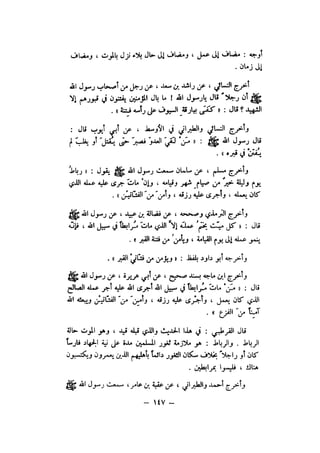 أوجه : مضاف إلى عمل ، ومضاف إلى حال بلاء نزل بالموت ، ومضاف
إلى زمان .
أخرج النسائي ، عن راشد بن سعد ، عن رجل من أصحاب رسول الله
ﷺ أن رجلاً قال يارسول الله ! ما بال المؤمنين يفتنون في قبورهم إلا
الشهيد ؟ قال : « كفى ببارقة السيوف على رأسه فتنة » .
وأخرج النسائي والطبراني في الأوسط ، عن أبي أيوب قال :
قال رسول الله ﷺ : « منْ لقيَ العدوّ فصبرَ حتى يُقتلَ أو يغلبَ لم
يُفتَنْ في قبره » .
وأخرج مسلم ، عن سلمان سمعت رسول الله ﷺ يقول : « رباطُ
يوم وليلة خيرٌ من صيام شهر وقيامه ، وإنْ ماتَ جرى عليه عمله الذي
كان يعمله ، وأجرى عليه رزقه ، وأمنَ منَ الفتّانَيْن » .
وأخرج الترمذي وصححه ، عن فضالة بن عبيد ، عن رسول الله ﷺ
قال : « كل ميّت يُختَمُ عملُه إلاّ الذي ماتَ مُرابطاً في سبيل الله ، فإنّه
ينمو عمله إلى يوم القيامة ، ويأمنُ من فتنة القبر » .
وأخرجه أبو داود بلفظ : « ويؤمن من فتّانَيْ القبر » .
وأخرج ابن ماجه بسند صحيح ، عن أبي هريرة ، عن رسول الله ﷺ
قال : « مَنْ ماتَ مُرابطاً في سبيل الله أجرى الله عليه أجر عمله الصالح
الذي كان يعمل ، وأجْرى عليه رزقه ، وأمِنَ منَ الفتّانَيْن ويبعثه الله
آمناً منَ الفزع » .
قال القرطبي : في هذا الحديث والذي قبله قيد ، وهو الموت حالة
الرباط . والرباط : هو ملازمة ثغور المسلمين مدة على نية الجهاد فارساً
كان أو راجلاً بخلاف سكان الثغور دائماً بأهليهم الذين يعمرون ويكتسبون
هنالك ، فليسوا بمرابطين .
وأخرج أحمد والطبراني ، عن عقبة بن عامر ، سمعت رسول الله ﷺ
– ١٤٧ –